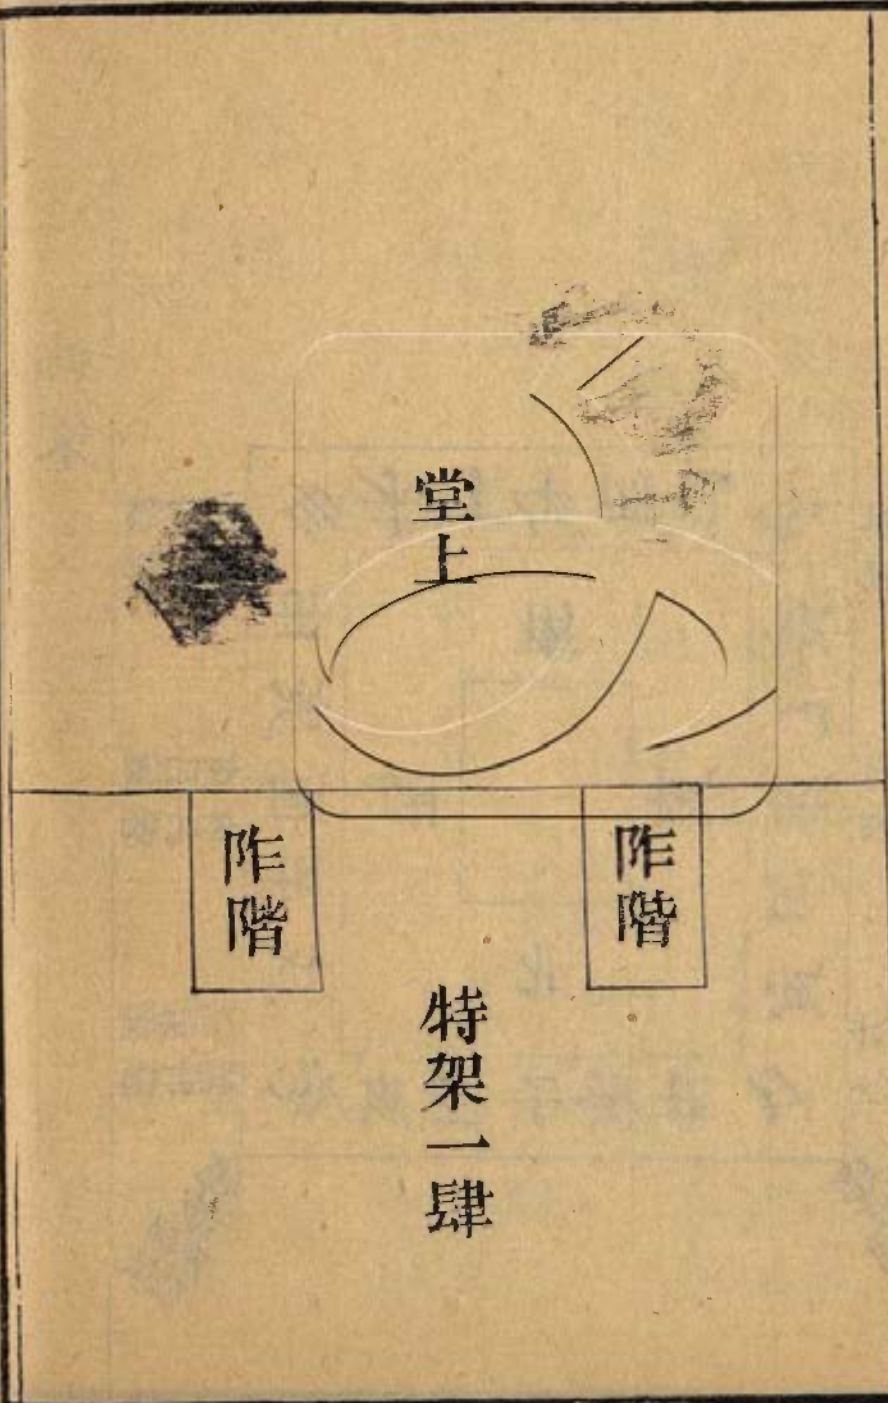 堂上
阼階
阼階
特架一肆